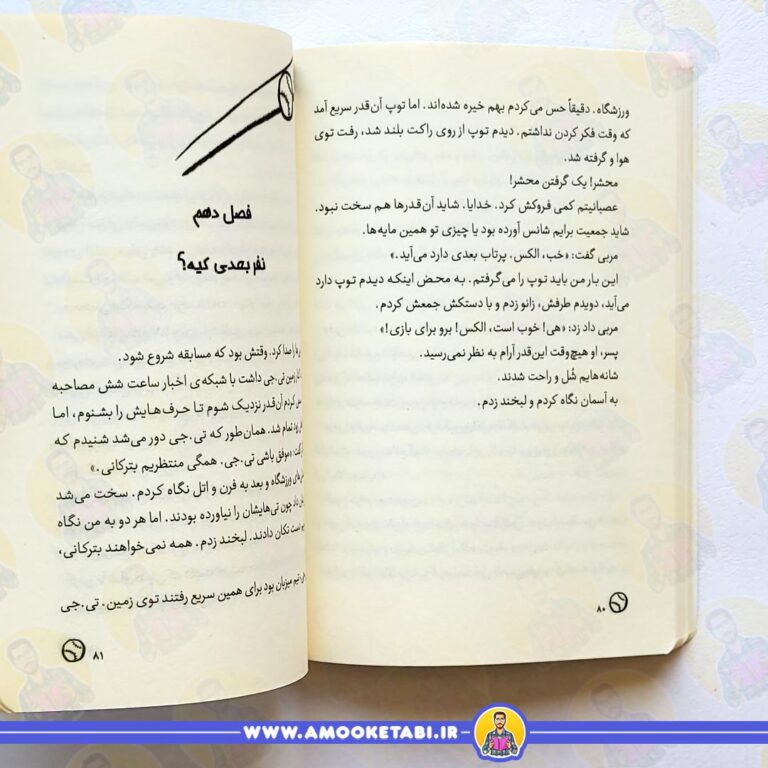 ورزشگاه. دقیقاً حس می‌کردم بهم خیره شده‌اند. اما توپ آن‌قدر سریع آمد
که وقت فکر کردن نداشتم. دیدم توپ از روی راکت بلند شد، رفت توی
هوا و گرفته شد.
محشر! یک گرفتن محشر!
عصبانیتم کمی فروکش کرد. خدایا. شاید آن‌قدرها هم سخت نبود.
شاید جمعیت برایم شانس آورده بود یا چیزی تو همین مایه‌ها.
مربی گفت: «خب، الکس. پرتاب بعدی دارد می‌آید.»
این بار من باید توپ را می‌گرفتم. به محض اینکه دیدم توپ دارد
می‌آید، دویدم طرفش، زانو زدم و با دستکش جمعش کردم.
مربی داد زد: «هی! خوب است، الکس! برو برای بازی!»
پسر، او هیچ‌وقت این‌قدر آرام به نظر نمی‌رسید.
شانه‌هایم شُل و راحت شدند.
به آسمان نگاه کردم و لبخند زدم.
۸۰
فصل دهم
نفر بعدی کیه؟
را صدا کرد. وقتش بود که مسابقه شروع شود.
زمین تی.جی داشت با شبکه‌ی اخبار ساعت شش مصاحبه
کردم آن‌قدر نزدیک شوم تا حرف‌هایش را بشنوم، اما
زود تمام شد. همان‌طور که تی.جی دور می‌شد شنیدم که
گفت: «موفق باشی تی.جی. همگی منتظریم بترکانی.»
ورزشگاه و بعد به فرن و اتل نگاه کردم. سخت می‌شد
چون تی‌هایشان را نیاورده بودند. اما هر دو به من نگاه
دست تکان دادند. لبخند زدم. همه نمی‌خواهند بترکانی،
تیم میزبان بود برای همین سریع رفتند توی زمین. تی.جی
۸۱
WWW.AMOOKETABI.IR